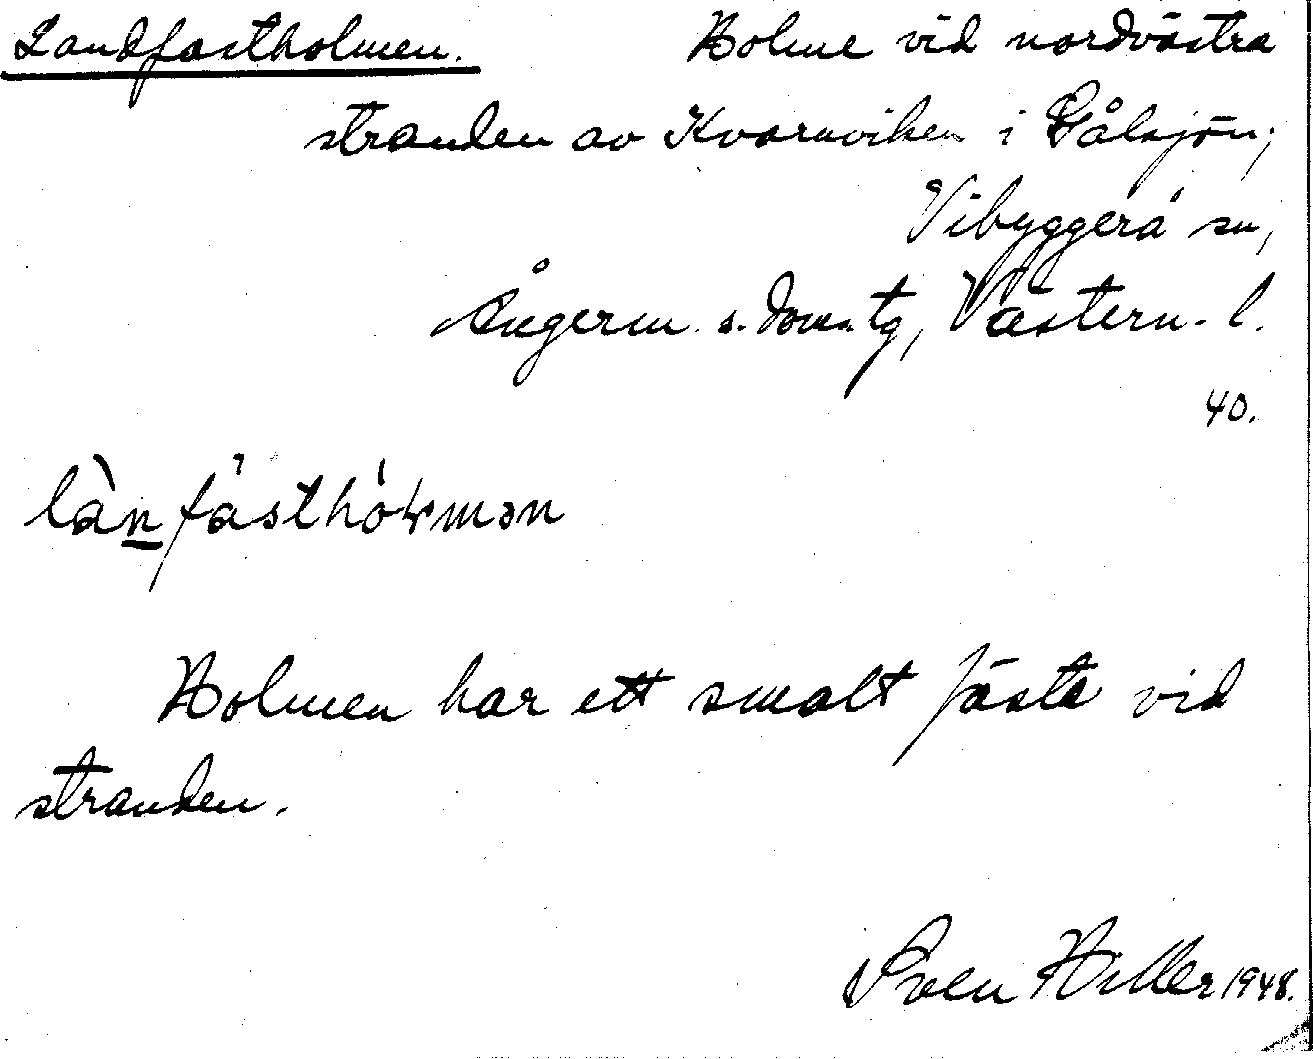 Landfastholmen. Holme vid nordvästra
stranden av Kvarnviken i Gålsjön;
Vibyggerå sn,
Ångerm. s. doms. tg, Västern. l.
40.
lànfásthólmən
Holmen har ett smalt fäste vid
stranden.
Sven Hiller 1948.